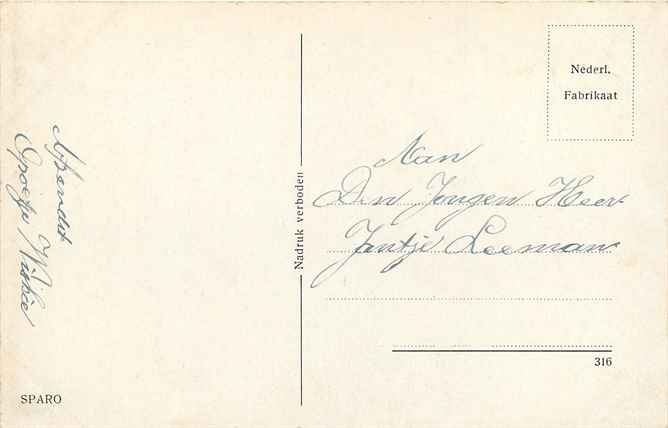 Nederl.
Fabrikaat
Aan
Den Jongen Heer
Jantje Leeman
Nadruk verboden
316
Afzendst
SPARO